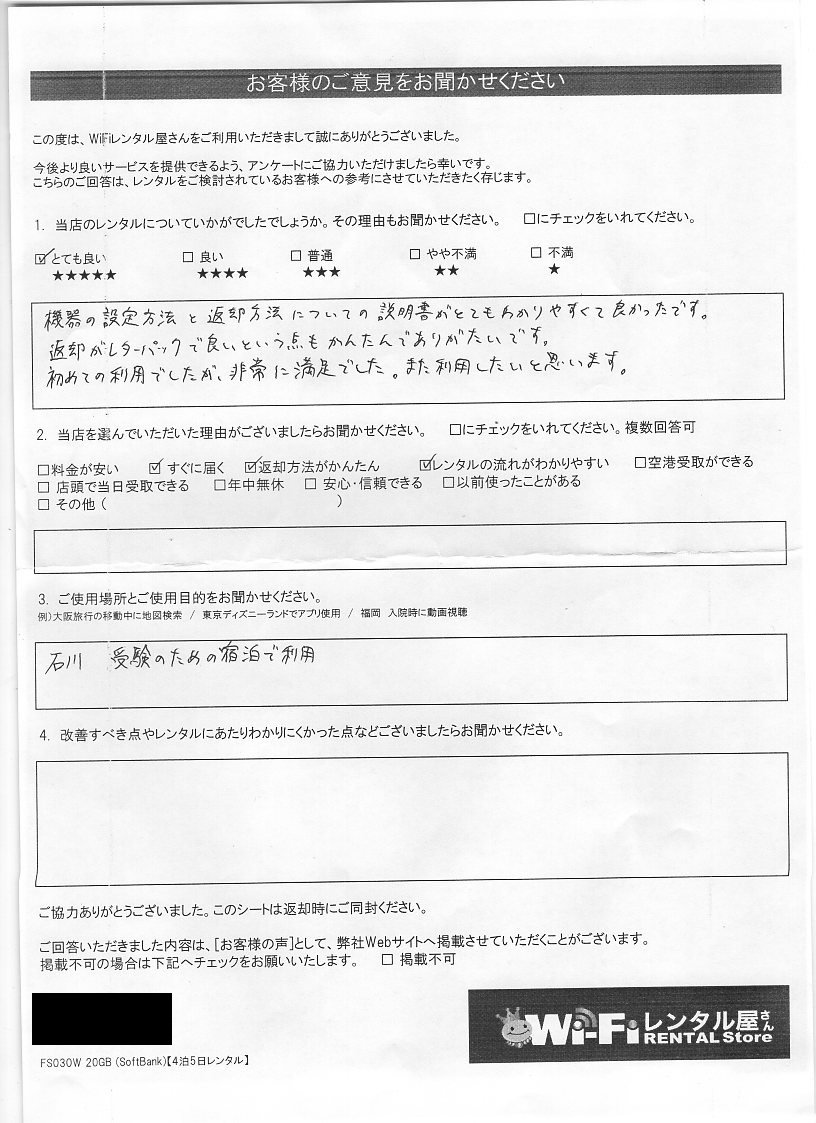 お客様のご意見をお聞かせください
この度は、WiFiレンタル屋さんをご利用いただきまして誠にありがとうございました。
今後より良いサービスを提供できるよう、アンケートにご協力いただけましたら幸いです。
こちらのご回答は、レンタルをご検討されているお客様への参考にさせていただきたく存じます。
1. 当店のレンタルについていかがでしたでしょうか。その理由もお聞かせください。 □にチェックをいれてください。
☑とても良い □ 良い □ 普通 □ やや不満 □ 不満
★★★★★ ★★★★ ★★★ ★★ ★
機器の設定方法と返却方法についての説明書がとてもわかりやすくて良かったです。
返却がレターパックで良いという点もかんたんでありがたいです。
初めての利用でしたが、非常に満足でした。また利用したいと思います。
2. 当店を選んでいただいた理由がございましたらお聞かせください。 □にチェックをいれてください。複数回答可
□料金が安い ☑ すぐに届く ☑返却方法がかんたん ☑レンタルの流れがわかりやすい □空港受取ができる
□ 店頭で当日受取できる □年中無休 □ 安心・信頼できる □以前使ったことがある
□ その他 ( )
3. ご使用場所とご使用目的をお聞かせください。
例)大阪旅行の移動中に地図検索 / 東京ディズニーランドでアプリ使用 / 福岡 入院時に動画視聴
石川 受験のための宿泊で利用
4. 改善すべき点やレンタルにあたりわかりにくかった点などございましたらお聞かせください。
ご協力ありがとうございました。このシートは返却時にご同封ください。
ご回答いただきました内容は、[お客様の声]として、弊社Webサイトへ掲載させていただくことがございます。
掲載不可の場合は下記へチェックをお願いいたします。 □ 掲載不可
Wi-Fiレンタル屋さん
RENTAL Store
FS030W 20GB (SoftBank)【4泊5日レンタル】